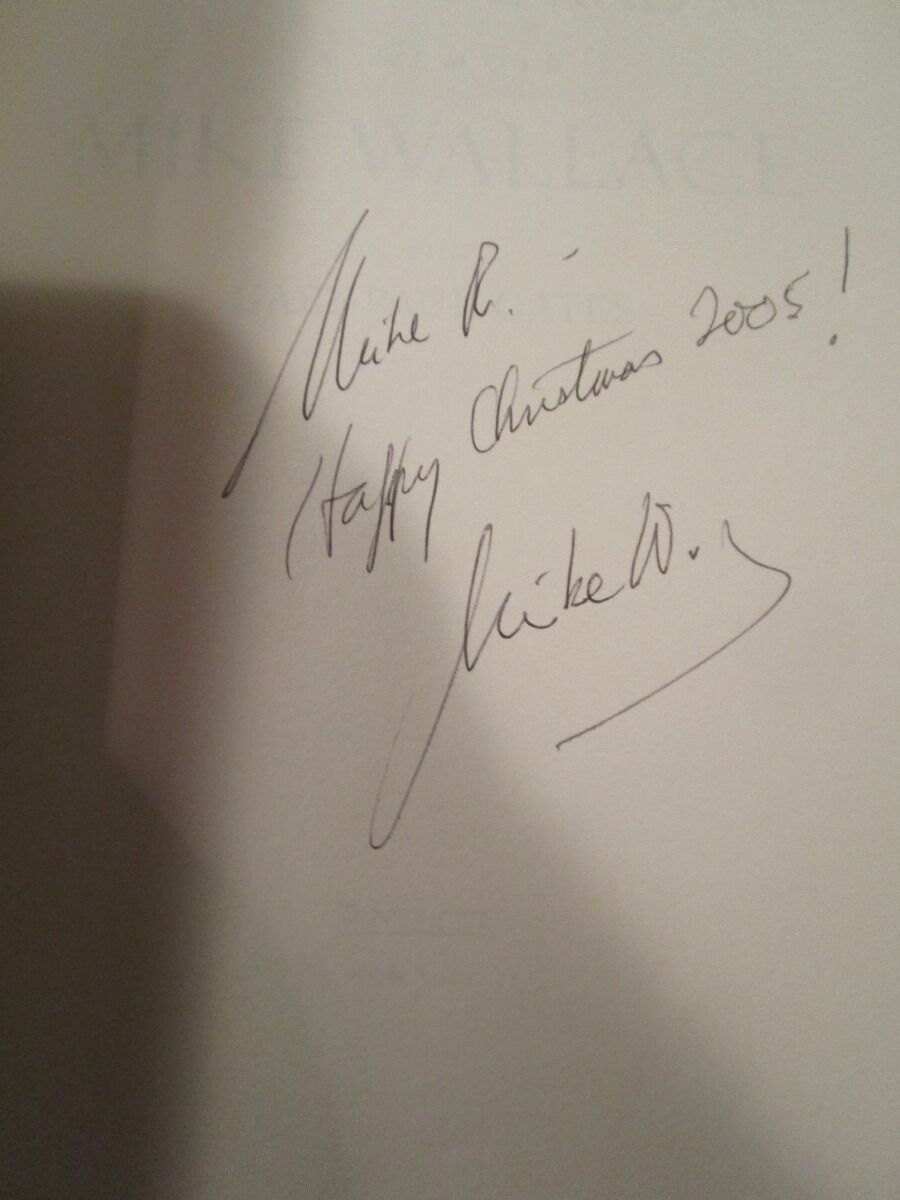 MIKE WALLACE
Mike R. -
Happy Christmas 2005!
Mike W.